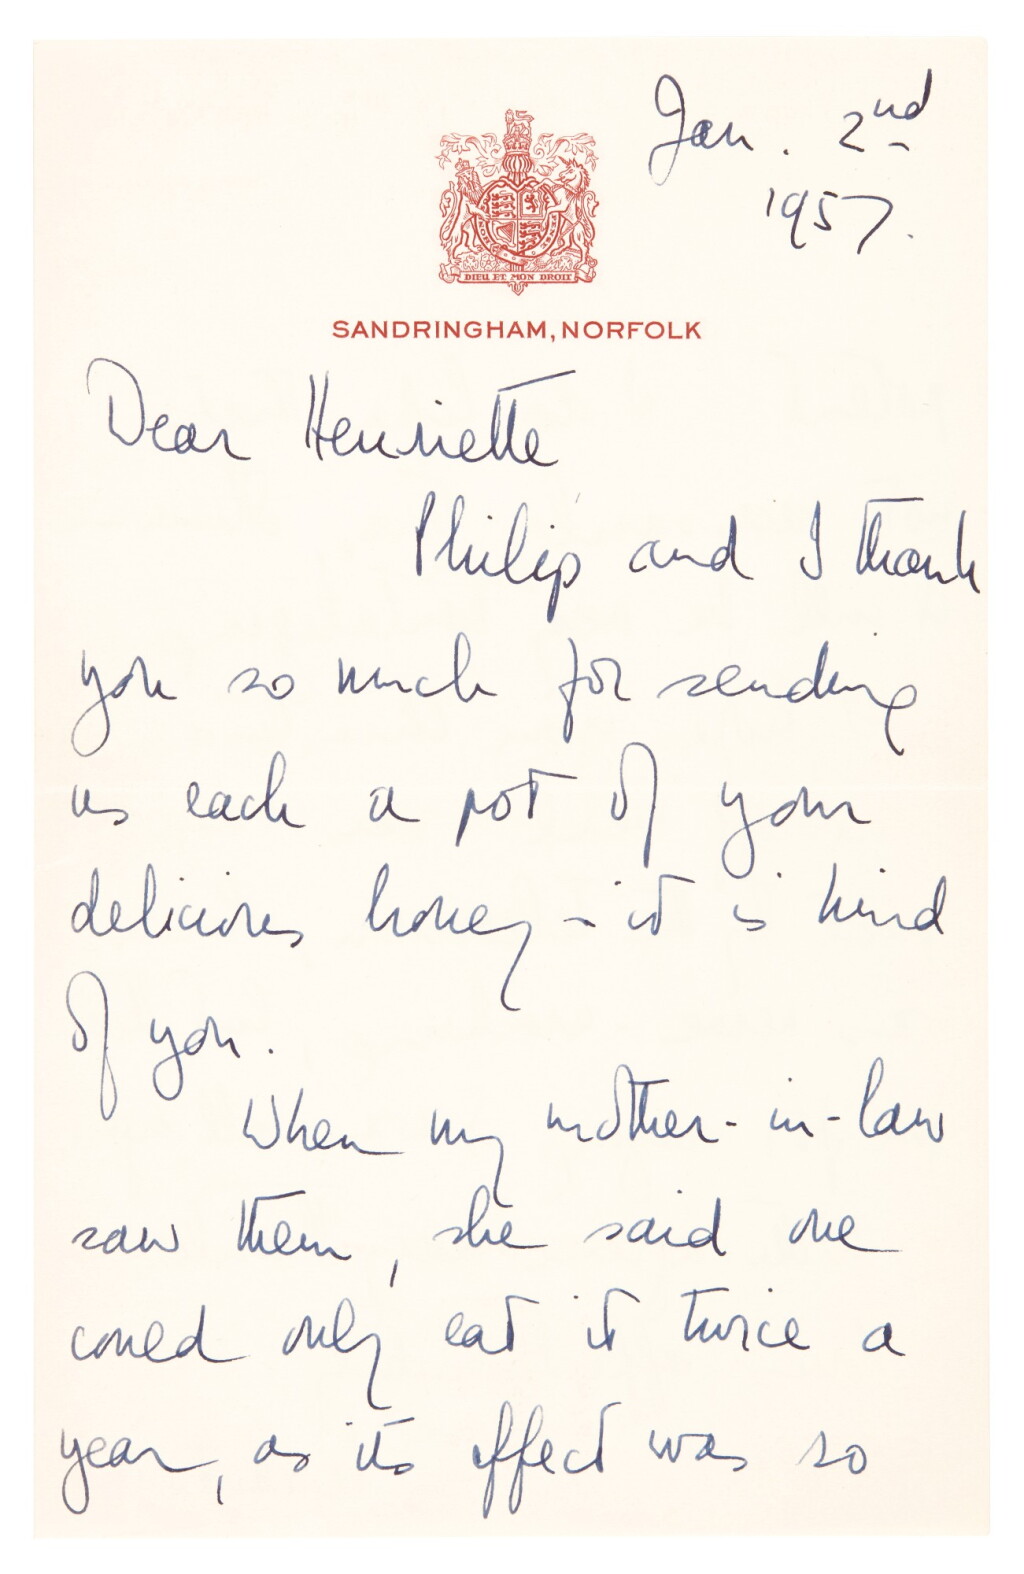 Jan. 2nd
1957.
DIEU ET MON DROIT
SANDRINGHAM, NORFOLK
Dear Henriette
Philip and I thank
you so much for sending
us each a pot of your
delicious honey - it is kind
of you.
When my mother-in-law
saw them, she said one
could only eat it twice a
year, as its effect was so